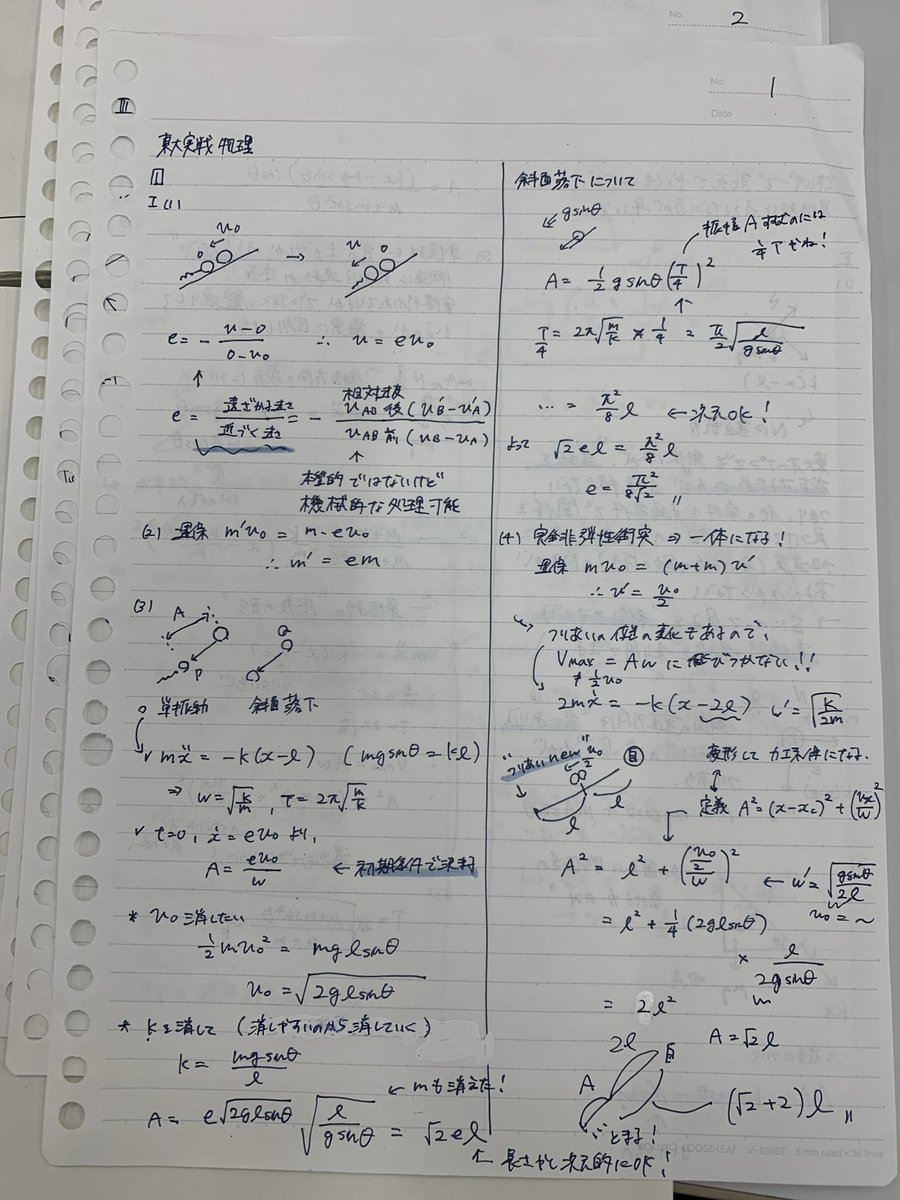 No. 2
No. 1
Date
III
東大実戦 物理
1
I (1)
u₀
u
e = - (u-0)/(0-u₀) ∴ u = eu₀
e = 遠ざかる速さ/近づく速さ = - 相対速度 u_AB後 (u'_B - u'_A)/u_AB前 (u_B - u_A)
本質的ではないけど
機械的な処理可能
(2) 運保 m'u₀ = m・eu₀
∴ m' = em
(3)
A
P
Q
○ 単振動 斜面落下
✓ mẍ = -k(x-l) (mg sinθ = kl)
⇒ ω = √(k/m), T = 2π√(m/k)
✓ t=0, ẋ = eu₀ より,
A = eu₀/ω ← 初期条件で決まる
* u₀消したい
½mu₀² = mgl sinθ
u₀ = √(2gl sinθ)
* kを消して (消しやすいのから消していく)
k = mg sinθ/l
← mも消えた!
A = e√(2gl sinθ) √(l/(g sinθ)) = √2 el
↑ 長さかで次元的にOK!
斜面落下について
g sinθ
振幅A すすむのには
¼Tだね!
A = ½ g sinθ (T/4)²
T/4 = 2π√(m/k) × ¼ = π/2 √(l/(g sinθ))
… = π²/8 l ← 次元OK!
よって √2 el = π²/8 l
e = π²/(8√2) 〃
(4) 完全非弾性衝突 ⇒ 一体になる!
運保 mu₀ = (m+m)u'
∴ u' = u₀/2
つりあいの位置の変化もあるので,
Vmax = Aω に結びつかない!!
≠ ½u₀
2mẍ = -k(x-2l) ω' = √(k/2m)
"つりあい new" u₀/2 自 変形して力エネ保になる.
l l
定義 A² = (x-x_c)² + (v_x/ω)²
A² = l² + (u₀/2/ω)² ← ω' = √(g sinθ/2l)
u₀ = ~
= l² + ¼(2gl sinθ)
× l/(2g sinθ)
= 2l²
A = √2 l
2l 自
A
(√2+2)l 〃
とまる!
KOKUYO LOOSE-LEAF ノ-836BT 6 mm ruled × 36 lines